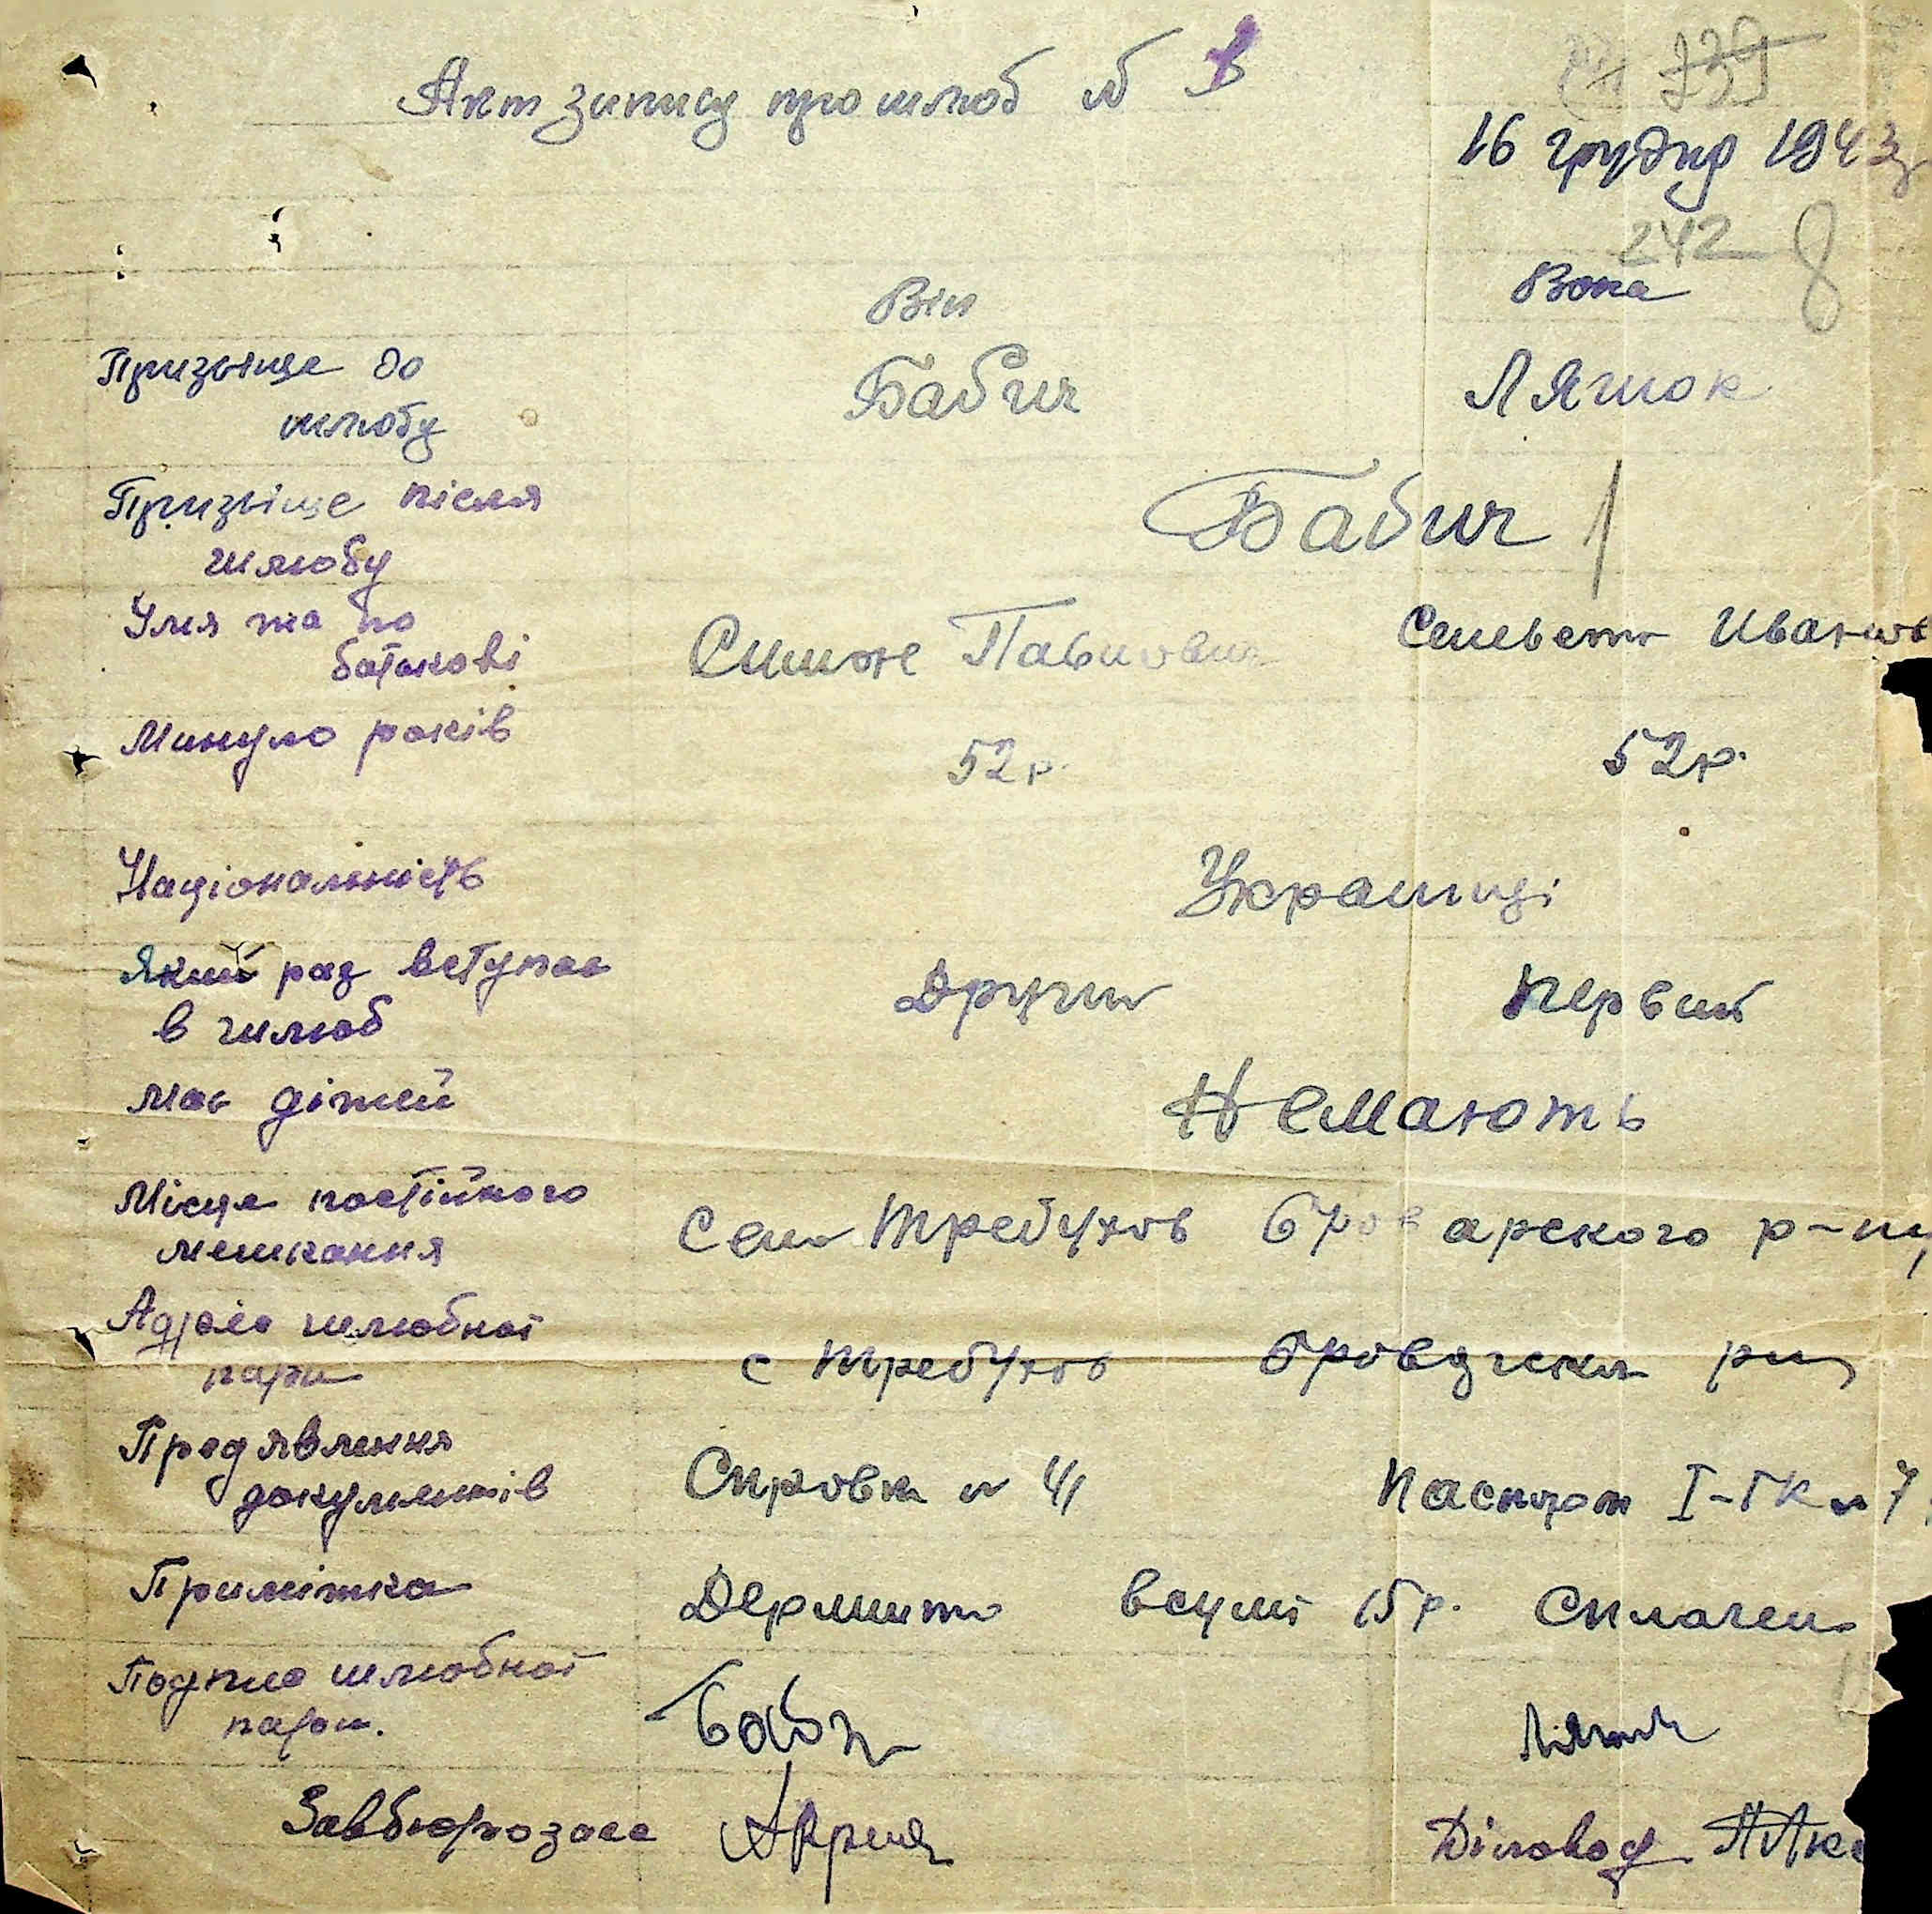 Акт запису про шлюб № 3
239
16 грудня 1943
242 8
Він Вона
Призвіще до шлюбу Бабич Ляшок
Призвіще після шлюбу Бабич
Имя та по батькові Павлович Иванов
Минуло років 52р. 52р.
Національність Украінці
Який раз вступає в шлюб Другий Первий
Має дітей Немають
Місце постійного мешкання Село Требухов Броварского р-ну
Адреса шлюбної пари с Требухов
Предявлення документів Справка № Паспорт I-ГК № 7
Примітка Держмито всумі 15р. Сплачен
Подпис шлюбної пари. Ляшок
Завбюрозагс Діловод